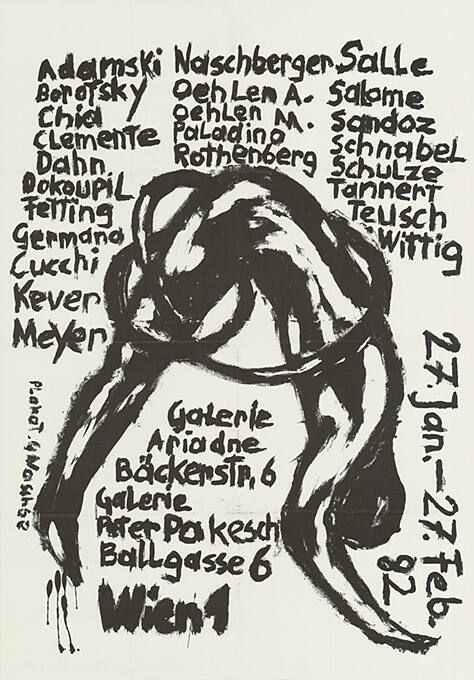 Adamski
Borofsky
Chia
Clemente
Dahn
Dokoupil
Fetting
Germana
Cucchi
Kever
Meyer
Naschberger
Oehlen A.
Oehlen M.
Paladino
Rothenberg
Salle
Salome
Sandoz
Schnabel
Schulze
Tannert
Teusch
Wittig
27. Jan. – 27. Feb.
82
Galerie
Ariadne
Bäckerstr. 6
Galerie
Peter Pakesch
Ballgasse 6
Wien 1